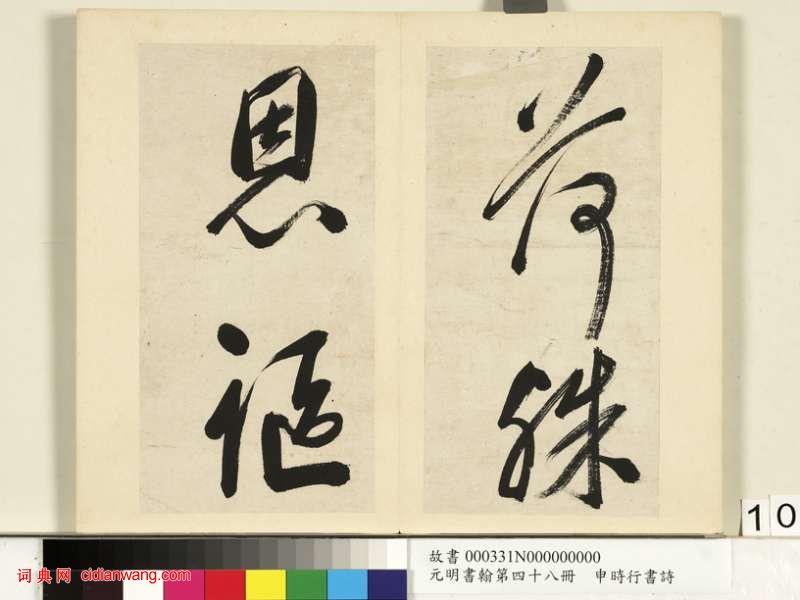 荷殊
恩謳
10
故書 000331N000000000
元明書翰第四十八冊 申時行書詩
词典网 cidianwang.com